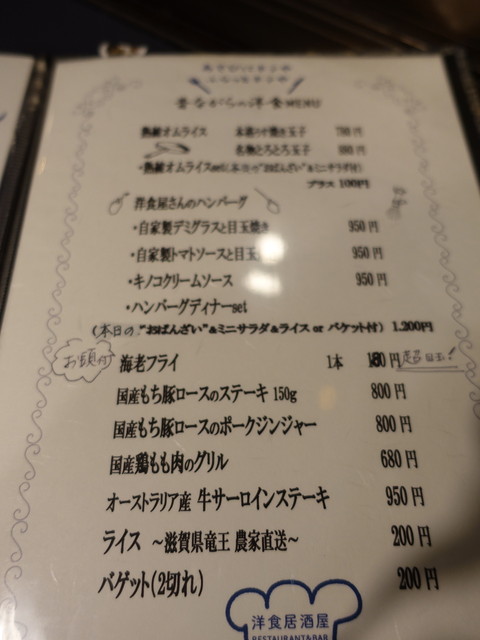 昔ながらの洋食MENU
熱鉄オムライス 本格うす焼き玉子 780円
名物とろとろ玉子 880円
・熱鉄オムライスset(本日の"おばんざい"&ミニサラダ付)
プラス 100円
洋食屋さんのハンバーグ
・自家製デミグラスと目玉焼き 950円
・自家製トマトソースと目玉 950円
・キノコクリームソース 950円
・ハンバーグディナーset
(本日の."おばんざい"&ミニサラダ&ライス or バケット付) 1.200円
お頭付 海老フライ 1本 円 超目玉!
国産もち豚ロースのステーキ 150g 800円
国産もち豚ロースのポークジンジャー 800円
国産鶏もも肉のグリル 680円
オーストラリア産 牛サーロインステーキ 950円
ライス ～滋賀県竜王 農家直送～ 200円
バゲット(2切れ) 200円
洋食居酒屋
RESTAURANT&BAR